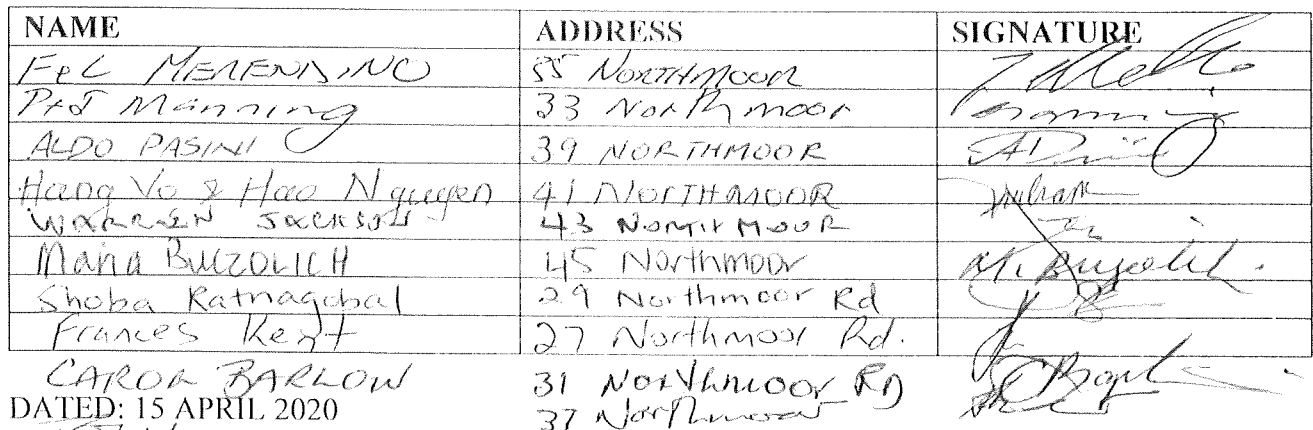 NAME ADDRESS SIGNATURE
F&C MERENDINO 55 NORTHMOOR
P+J Manning 33 Northmoor
ALDO PASINI 39 NORTHMOOR
Hang Vo & Hao Nguyen 41 NORTHMOOR
WARREN JACKSON 43 NORTHMOOR
Maria BUCZOLICH 45 Northmoor
Shoba Ratnagobal 29 Northmoor Rd
Frances Kent 27 Northmoor Rd.
CAROL BARLOW 31 Northmoor RD
DATED: 15 APRIL 2020
37 Northmoor